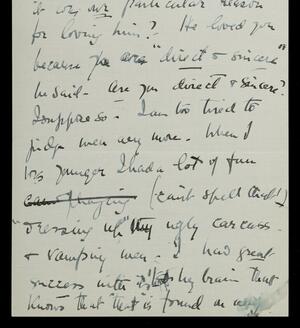 it any our particular reason
for loving him? He loved you
because you are "direct & sincere"
he said - Are you direct & sincere?
I suppose so - I am too tired to
judge men any more. When I
was younger I had a lot of fun
(can't spell that!)
dressing up my ugly carcass
& vamping men - I had great
success with it but my brain that
knows that "that" is found on any